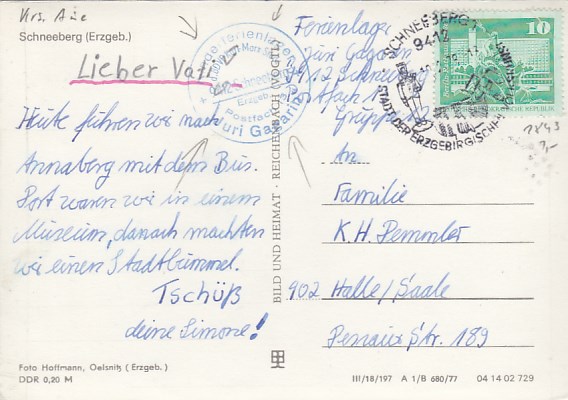 Krs. Aue
Schneeberg (Erzgeb.)
Lieber Vati
Heute führen wir nach
Annaberg mit dem Bus.
Dort waren wir in einem
Museum, danach machten
wir einen Stadtbummel.
Tschüß
deine Simone!
Foto Hoffmann, Oelsnitz (Erzgeb.)
DDR 0,20 M
Postfach
Juri Gagarin
BILD UND HEIMAT · REICHENBACH (VOGTL)
Ferienlager
Juri Gagarin
9412 Schneeberg
Postfach 1
Gruppe
An
Familie
K.H. Demmler
902 Halle/Saale
Str. 189
SCHNEEBERG 1
9412
STADT DER ERZGEBIRGISCHEN
10
1843
III/18/197 A 1/B 680/77 04 14 02 729